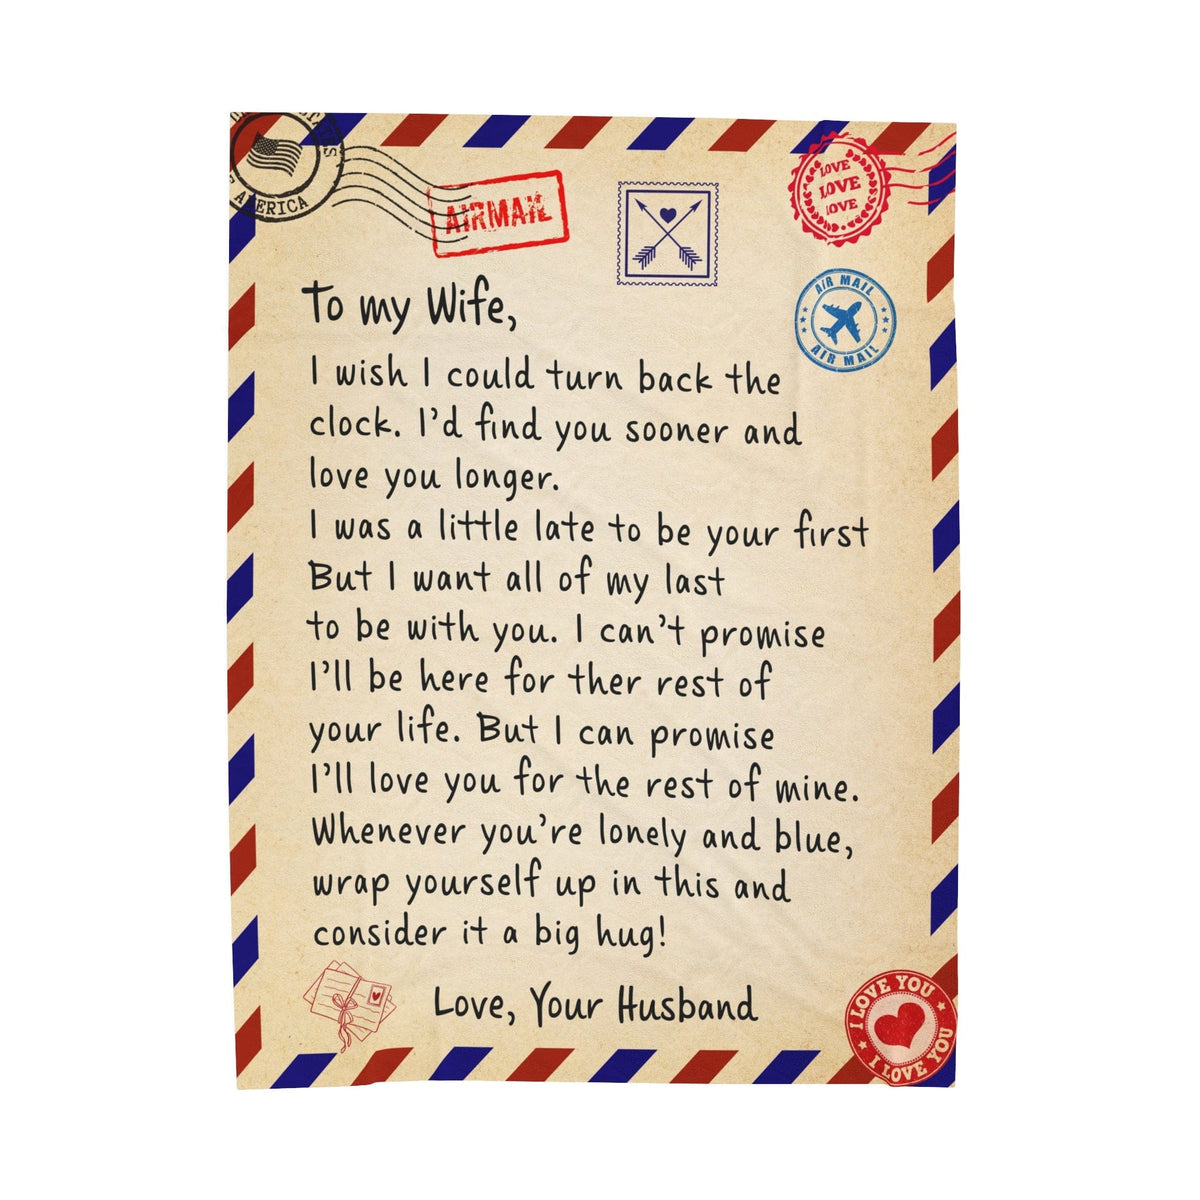 AMERICA
AIRMAIL
LOVE
LOVE
LOVE
AIR MAIL
AIR MAIL
To my Wife,
I wish I could turn back the
clock. I'd find you sooner and
love you longer.
I was a little late to be your first
But I want all of my last
to be with you. I can't promise
I'll be here for ther rest of
your life. But I can promise
I'll love you for the rest of mine.
Whenever you're lonely and blue,
wrap yourself up in this and
consider it a big hug!
Love, Your Husband
I LOVE YOU
I LOVE YOU